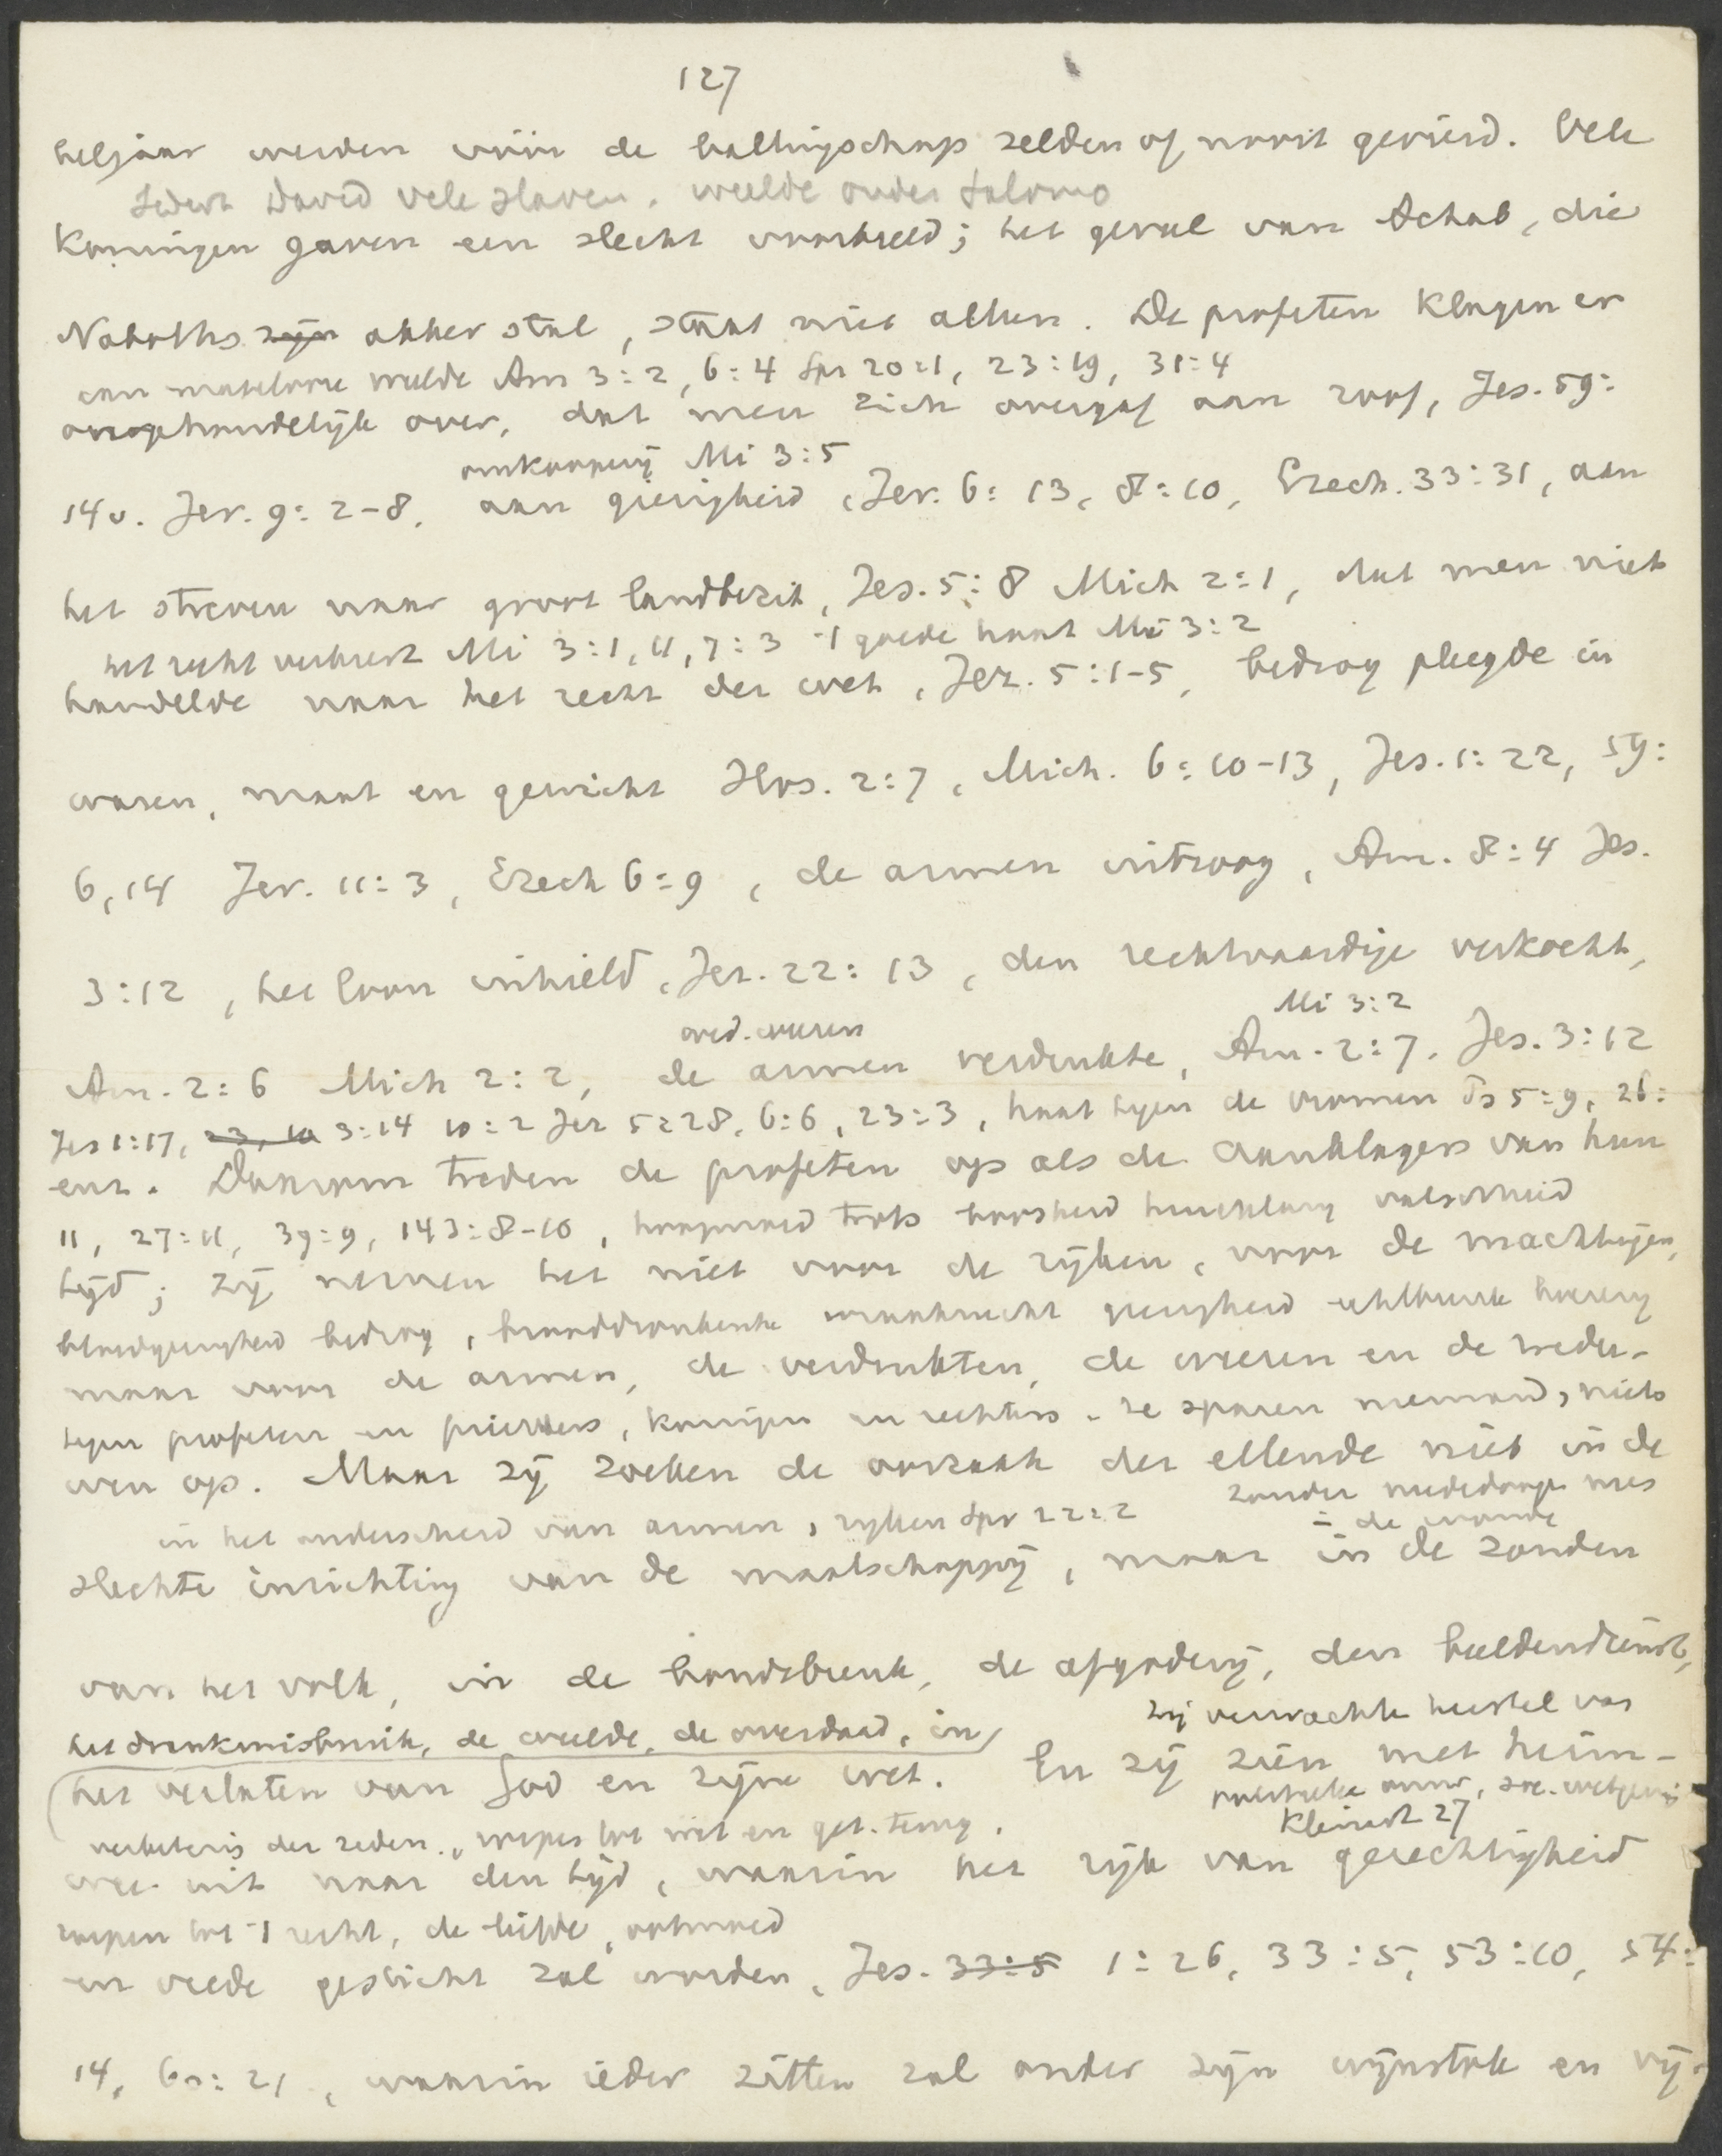 127
beljaar werden vóór de ballingschap zelden of nooit gevierd. Vele
Sedert David vele slaven. weelde onder Salomo
Koningen gaven een slecht voorbeeld; het geval van Achab, die
Naboths zijn akker stal, staat niet alleen. De profeten klagen er
aan matelooze weelde Am 3:2, 6:4 Spr 20:1, 23:19, 31:4
onophoudelijk over, dat men zich overgaf aan roof, Jes. 59:
omkooperij Mi 3:5
14v. Jer. 9:2-8, aan gierigheid, Jer. 6:13, 8:10, Ezech. 33:31, aan
het streven naar groot landbezit, Jes. 5:8 Mich 2:1, dat men niet
het recht verkeert Mi 3:1, 11, 7:3 't goede haat Mi 3:2
handelde naar het recht der wet, Jer. 5:1-5, bedrog pleegde in
waren, maat en gewicht Hos. 2:7, Mich. 6:10-13, Jes. 1:22, 59:
6, 14 Jer. 11:3, Ezech 6:9, de armen uitzoog, Am. 8:4 Jes.
3:12, het loon inhield, Jer. 22:13, den rechtvaardige verkocht,
wed. weezen
Mi 3:2
Am. 2:6 Mich 2:2, de armen verdrukte, Am. 2:7, Jes. 3:12
Jes 1:17, 23, 10 3:14 10:2 Jer 5:28, 6:6, 23:3, haat tegen de vromen Ps 5:9, 26:
enz. Daarom treden de profeten op als de aanklagers van hun
11, 27:11, 39:9, 143:8-10, hoogmoed trots boosheid huichelarij valschheid
tijd; zij nemen het niet voor de rijken, voor de machtigen,
bloedgierigheid bedrog, wraakzucht gierigheid echtbreuk hoererij
maar voor de armen, de verdrukten, de weezen en de wedu-
tegen profeten en priesters, koningen en rechters. ze sparen niemand, niets
wen op. Maar zij zoeken de oorzaak der ellende niet in de
in het onderscheid van armen, rijken Spr 22:2
zonder
in de
slechte inrichting van de maatschappij, maar in de zonden
van het volk, in de bondsbreuk, de afgoderij, den beeldendienst,
het drankmisbruik, de weelde, de overdaad, in
zij verwachten herstel van
het verlaten van God en zijne wet. En zij zien met heim-
soc. wetgeving
Kleinert 27
verbetering der zeden, roepen tot wet en get. terug.
wee uit naar den tijd, waarin het rijk van gerechtigheid
roepen tot 't recht, de liefde, ootmoed
en vrede gesticht zal worden, Jes. 33:5 1:26, 33:5, 53:10, 54:
14, 60:21, waarin ieder zitten zal onder zijn wijnstok en vij-